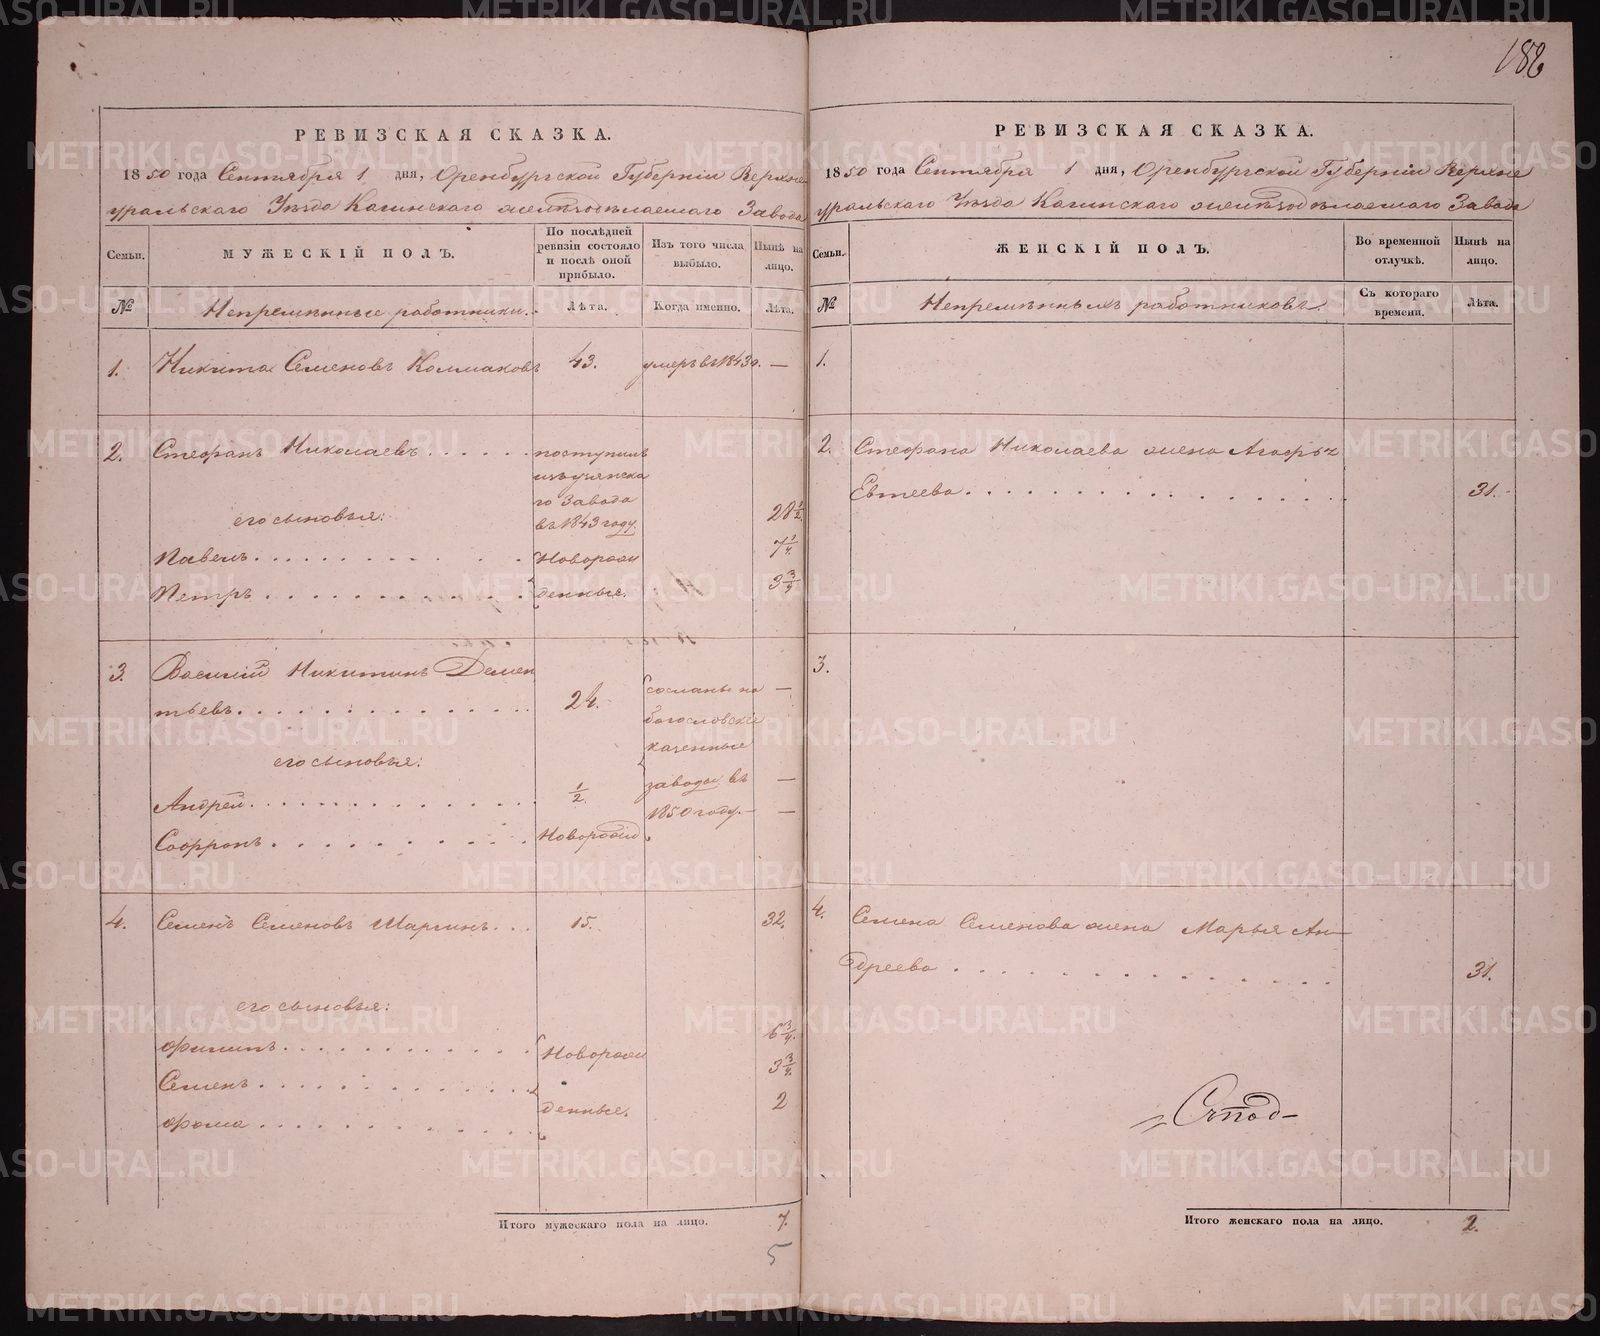 186
РЕВИЗСКАЯ СКАЗКА.
1850 года Сентября 1 дня, Оренбургской Губерніи Верхне
уральскаго Уѣзда Кагинскаго желѣзодѣлаемаго Завода
Семьи.
МУЖЕСКІЙ ПОЛЪ.
По послѣдней
ревизіи состояло
и послѣ оной
прибыло.
Изъ того числа
выбыло.
Нынѣ на
лицо.
№
Непремѣнные работники.
Лѣта.
Когда именно.
Лѣта.
1. Никита Семеновъ Колмаковъ 43. умеръ въ 1843 г. —
2. Стефанъ Николаевъ
поступилъ
изъ узянска
го Завода
въ 1843 году. 28 1/2
его сыновья:
Павелъ 7 1/4
Петръ 3 3/4
Новорож
денные.
3. Василій Никитинъ Демен
тьевъ. 24. —
сосланы на
богословскіе
казенные
заводы въ
1850 году.
его сыновья:
Андрей 1/2. —
Софронъ Новорожд —
4. Семенъ Семеновъ Шаргинъ 15. 32.
его сыновья:
Филипъ 6 3/4.
Семенъ 3 3/4.
Фома 2
Новорож
денные.
Итого мужескаго пола на лицо. 7.
5
РЕВИЗСКАЯ СКАЗКА.
1850 года Сентября 1 дня, Оренбургской Губерніи Верхне
уральскаго Уѣзда Кагинскаго желѣзодѣлаемаго Завода
Семьи.
ЖЕНСКІЙ ПОЛЪ.
Во временной
отлучкѣ.
Нынѣ на
лицо.
№
Непремѣнныхъ работниковъ.
Съ котораго
времени.
Лѣта.
1.
2. Стефана Николаева жена Агафья
Евтеева 31.
3.
4. Семена Семенова жена Марья Ан—
дреева 31.
Итого женскаго пола на лицо. 2.
METRIKI.GASO-URAL.RU